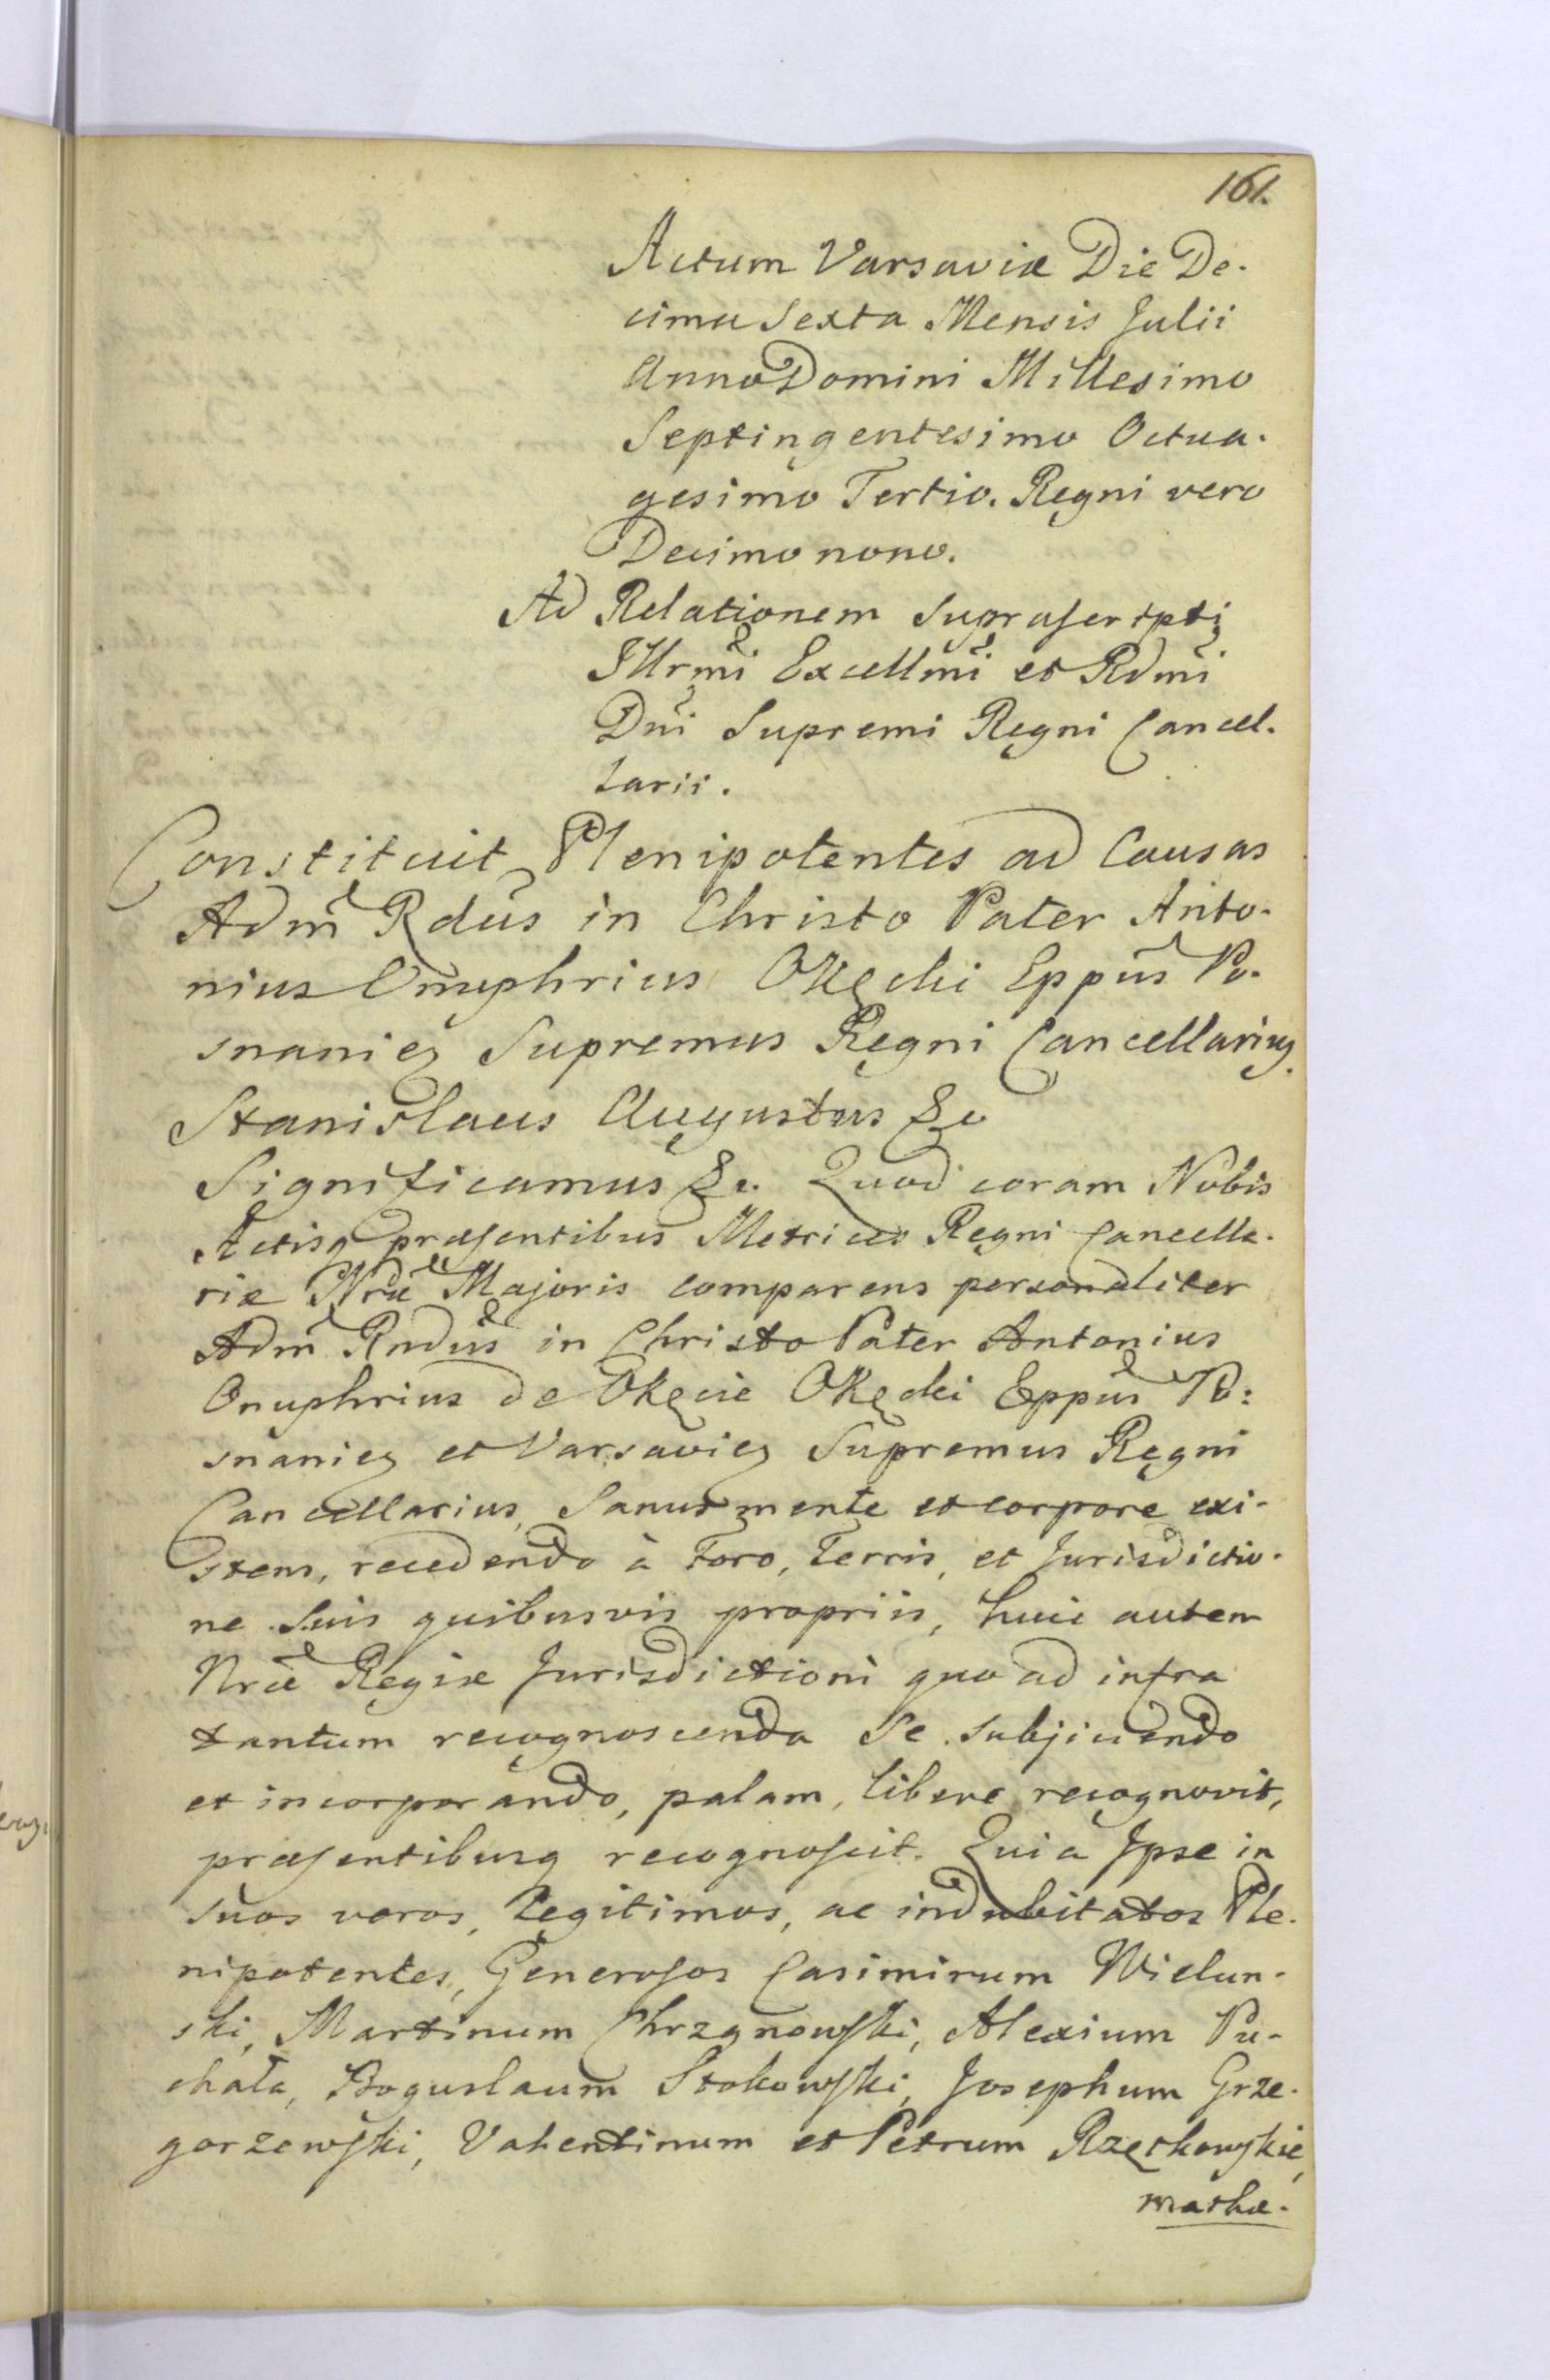 161.
Actum Varsaviæ Die De-
cima Sexta Mensis Julii
Anno Domini Millesimo
Septingentesimo Octua-
gesimo Tertio. Regni vero
Decimo nono.
Ad Relationem Suprascripti
Illrmi Excellmi et Rdmi
Dni Supremi Regni Cancel-
larii.
Constituit Plenipotentes ad Causas
Adm Rdus in Christo Pater Anto-
nius Onuphrius Okęcki Eppus Po-
snanieſ Supremus Regni Cancellarius.
Stanislaus Augustus &c
Significamus &c. Quod coram Nobis
Actisq præsentibus Metrices Regni Cancella-
riæ Nræ Majoris comparens personaliter
Adm Rndus in Christo Pater Antonius
Onuphrius de Okęcie Okęcki Eppus Po-
snanieſ et Varsavieſ Supremus Regni
Cancellarius, Sanus mente et corpore exi-
stens, recedendo à Foro, Terris, et Jurisdictio-
ne Suis quibusvis propriis, huic autem
Nræ Regiæ Jurisdictioni quo ad infra
tantum recognoscenda Se subjiciendo
et incorporando, palam, libere recognovit,
præsentibusq recognoscit. Quia Ipse in
suos veros, Legitimos, ac indubitatos Ple-
nipotentes, Generosos Casimirum Wielun-
ski, Martinum Chrzanowski, Alexium Pu-
chała, Boguslaum Stokowski, Josephum Grze-
gorzewski, Valentinum et Petrum Rzętkowskie,
mathæ-